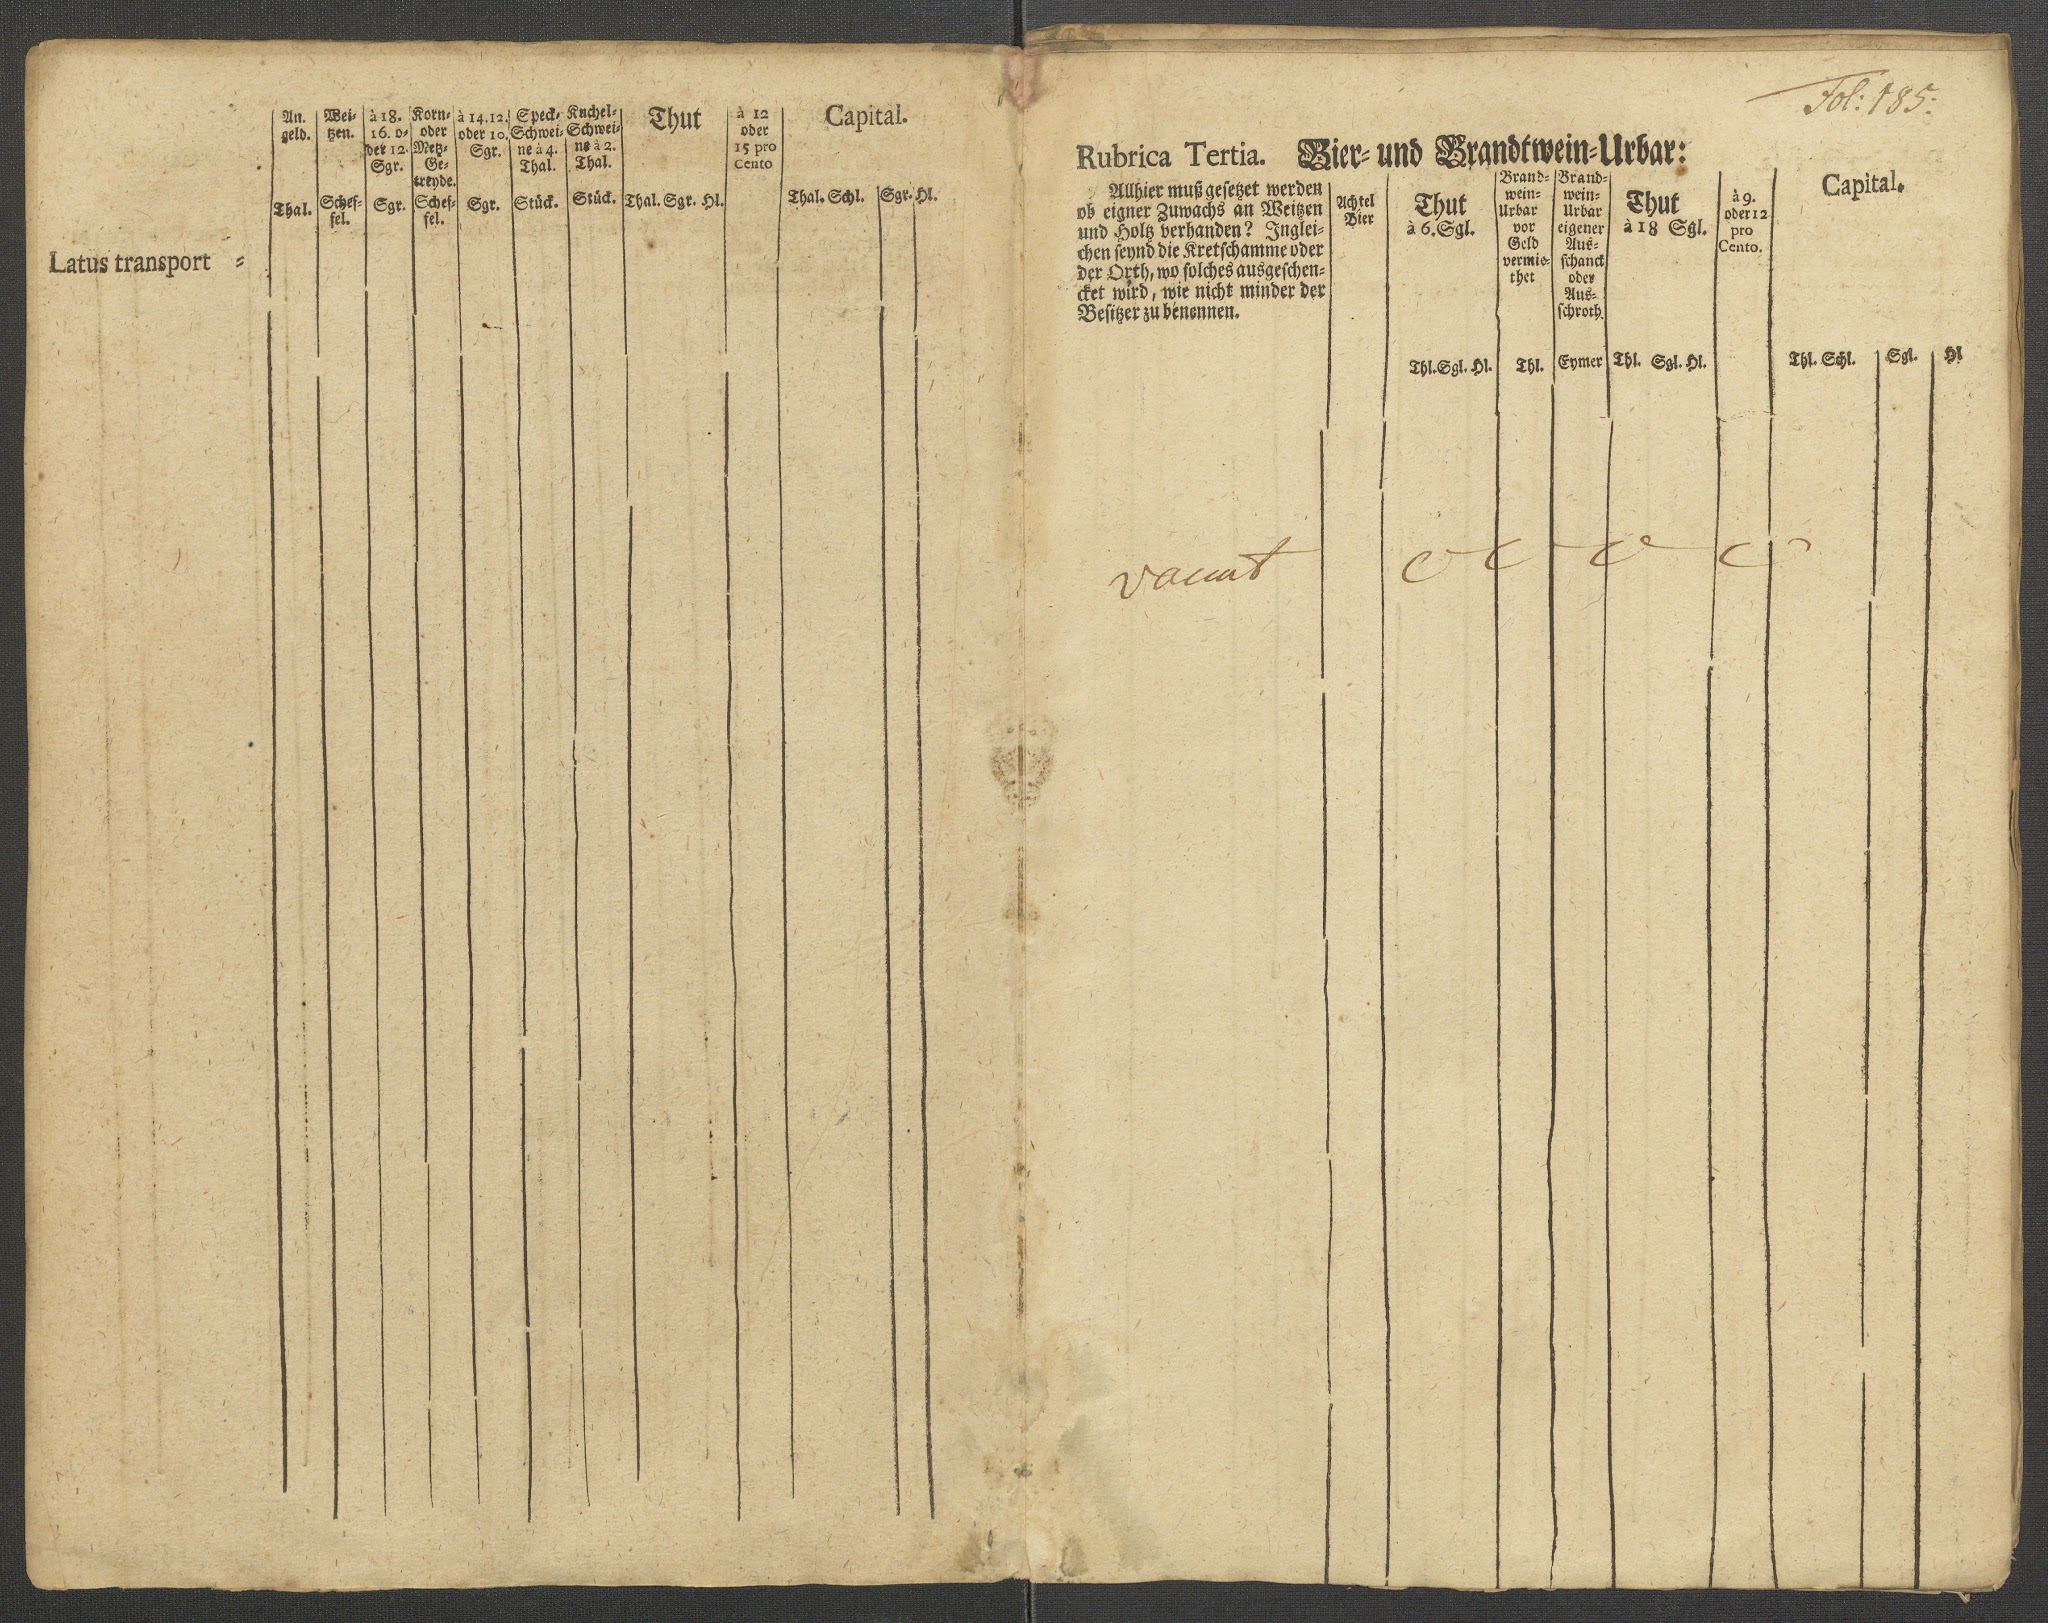 An.
geld.
Thal.
Wei-
tzen.
Schef-
fel.
à 18.
16. o-
der 12.
Sgr.
Sgr.
Korn-
oder
Metz-
Ge-
treyde.
Schef-
fel.
à 14. 12.
oder 10.
Sgr.
Sgr.
Speck-
Schwei-
ne à 4.
Thal.
Stück.
Kuchel-
Schwei-
ne à 2.
Thal.
Stück.
Thut
Thal. Sgr. Hl.
à 12
oder
15 pro
Cento
Capital.
Thal. Schl. Sgr. Hl.
Latus transport =
Fol: 185:
Rubrica Tertia. Bier- und Brandtwein-Urbar:
Allhier muß gesetzet werden
ob eigner Zuwachs an Weitzen
und Holtz verhanden? Inglei-
chen seynd die Kretschamme oder
der Orth, wo solches ausgeschen-
cket wird, wie nicht minder der
Besitzer zu benennen.
Achtel
Bier
Thut
à 6. Sgl.
Thl. Sgl. Hl.
Brand-
wein-
Urbar
vor
Geld
vermie-
thet
Thl.
Brand-
wein-
Urbar
eigener
Aus-
schanck
oder
Aus-
schroth.
Eymer
Thut
à 18 Sgl.
Thl. Sgl. Hl.
à 9.
oder 12
pro
Cento.
Capital.
Thl. Schl. Sgl. Hl
vacat